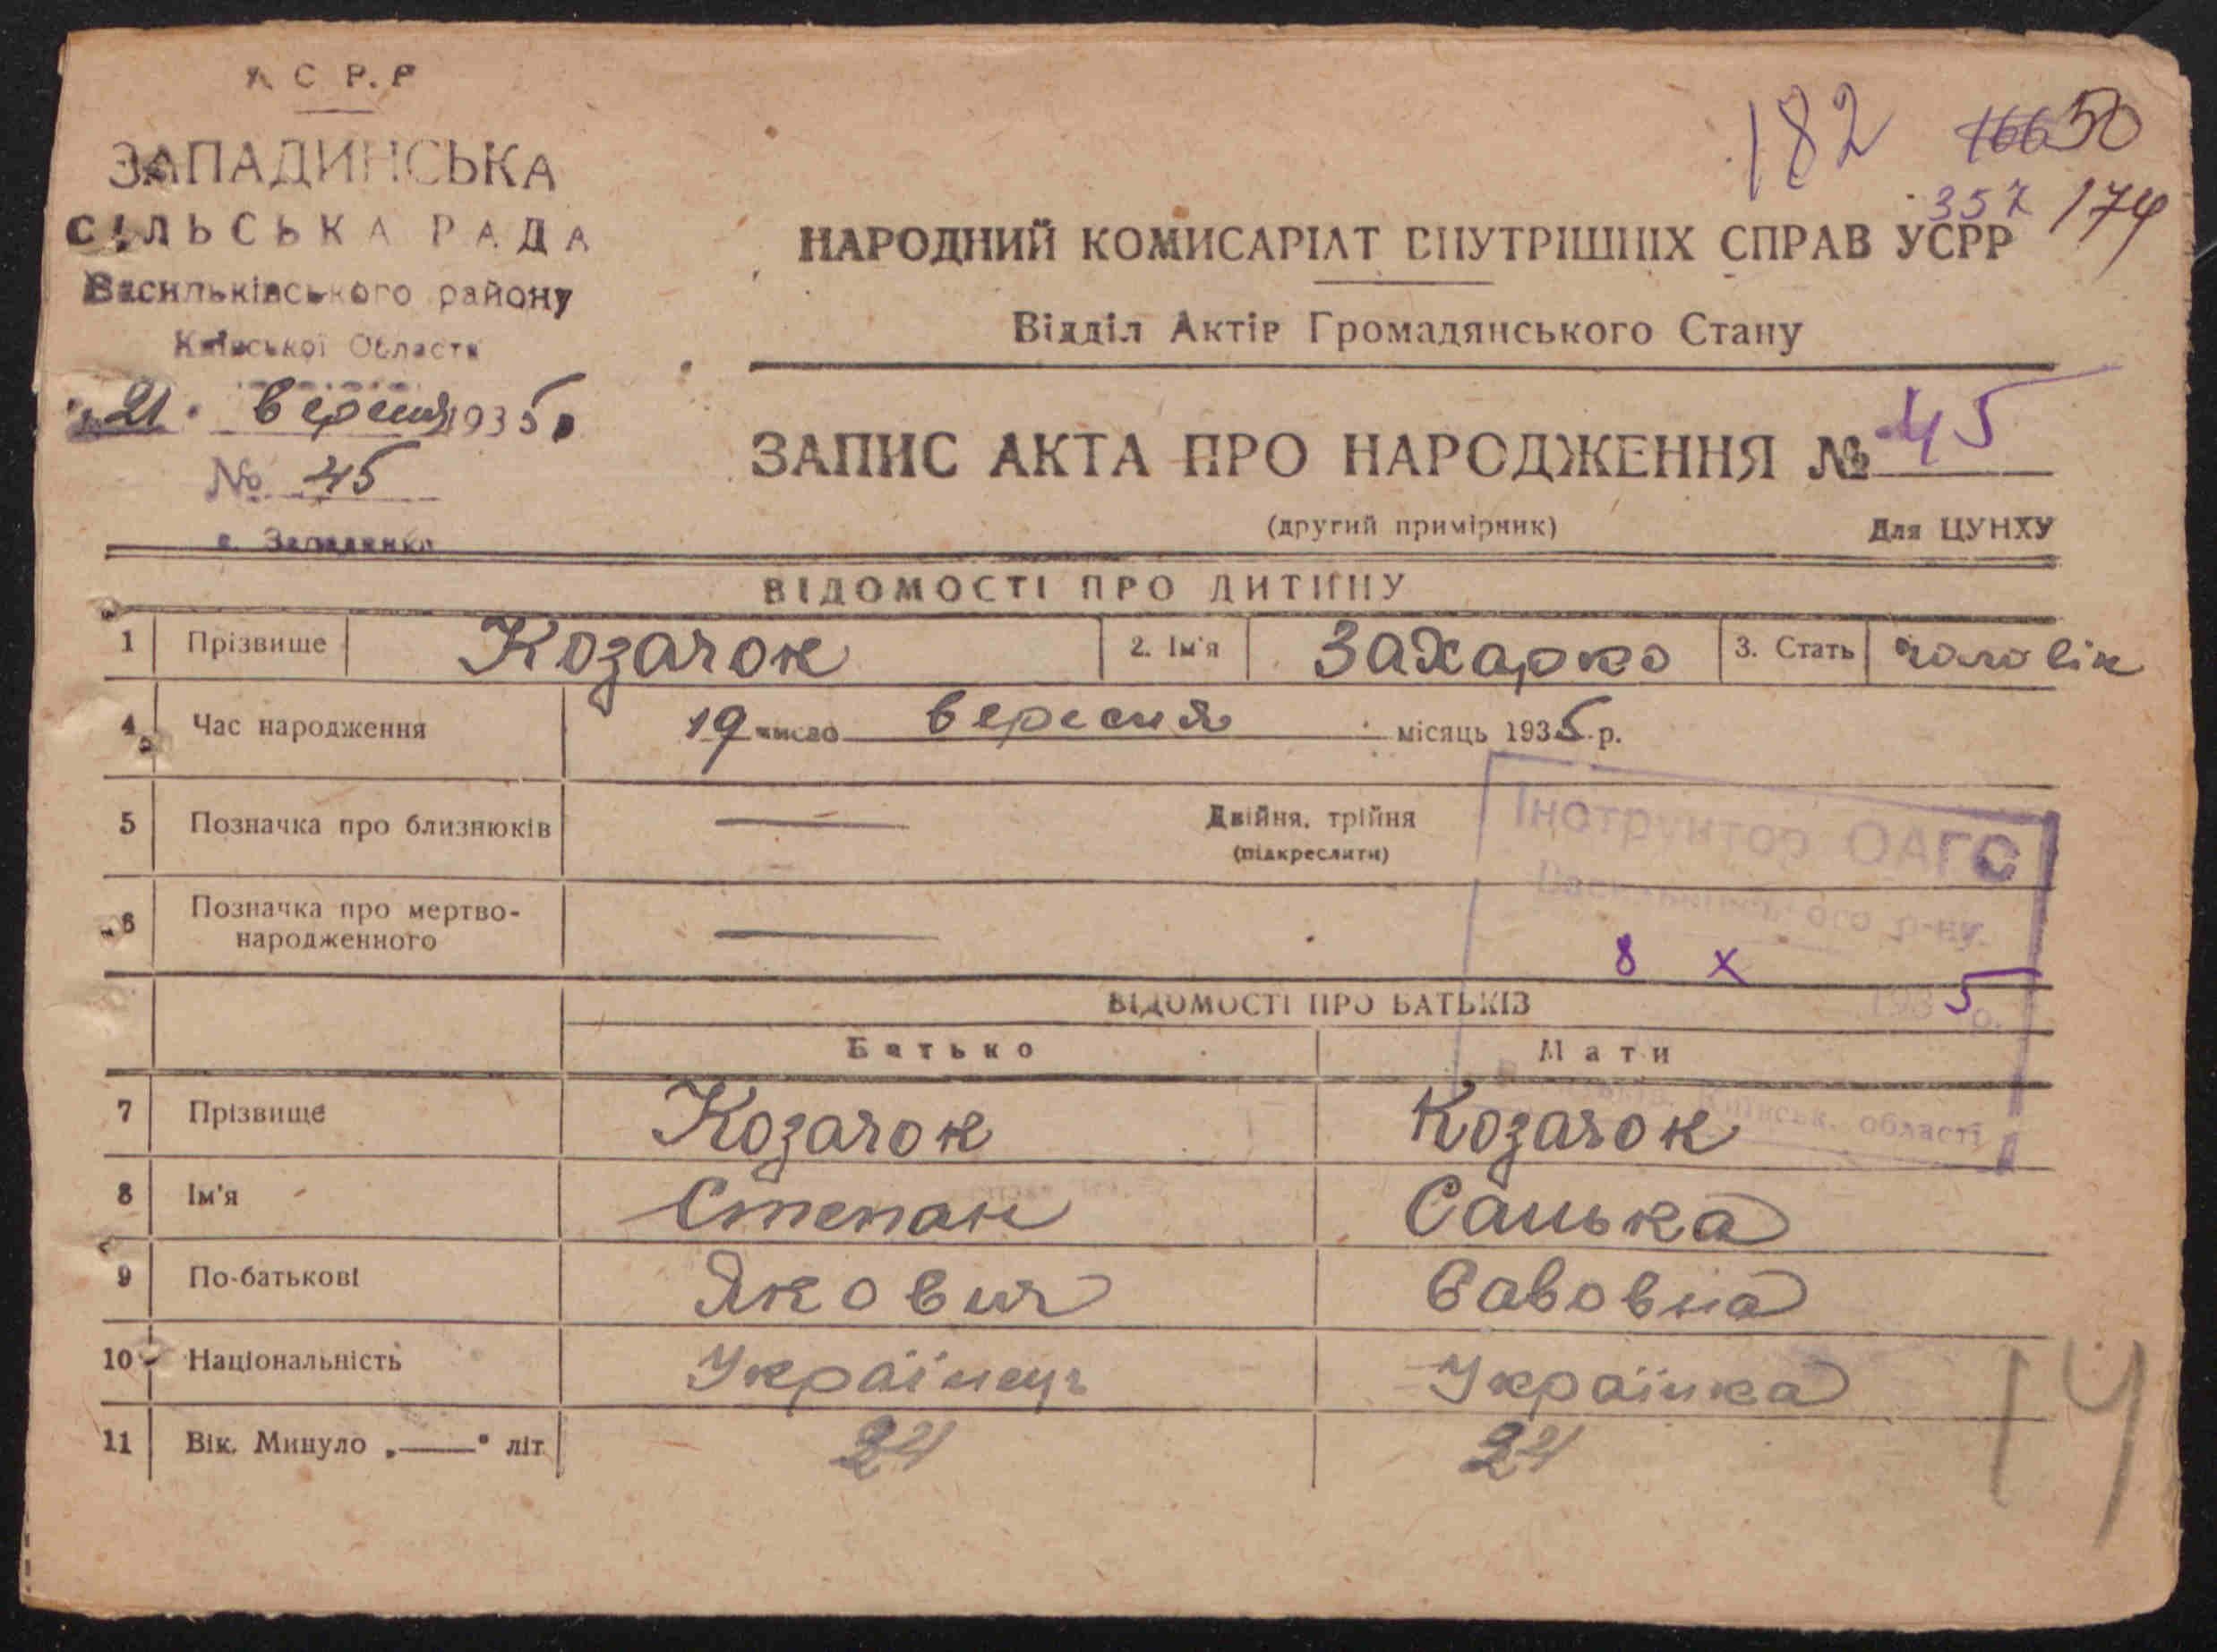 У С Р. Р
ЗАПАДИНСЬКА
СІЛЬСЬКА РАДА
Васильківського району
Київської Області
21. вересня 1935 р.
№ 45
с. Западинка
182 166 50
357 174
НАРОДНИЙ КОМИСАРІАТ ВНУТРІШНІХ СПРАВ УСРР
Відділ Актів Громадянського Стану
ЗАПИС АКТА ПРО НАРОДЖЕННЯ № 45
(другий примірник) Для ЦУНХУ
ВІДОМОСТІ ПРО ДИТИНУ
1 Прізвище Козачок 2. Ім'я Захарко 3. Стать чоловік
4 Час народження 19 число вересня місяць 1935 р.
5 Позначка про близнюків — Двійня, трійня
(підкреслити)
6 Позначка про мертво-
народженного —
Інструктор ОАГС
Васильківського р-ну
8 X 1935 р.
Київськ. області
ВІДОМОСТІ ПРО БАТЬКІВ
Батько Мати
7 Прізвище Козачок Козачок
8 Ім'я Степан Санька
9 По-батькові Якович Савовна
10 Національність Українець Українка
11 Вік. Минуло „—" літ 24 24
14